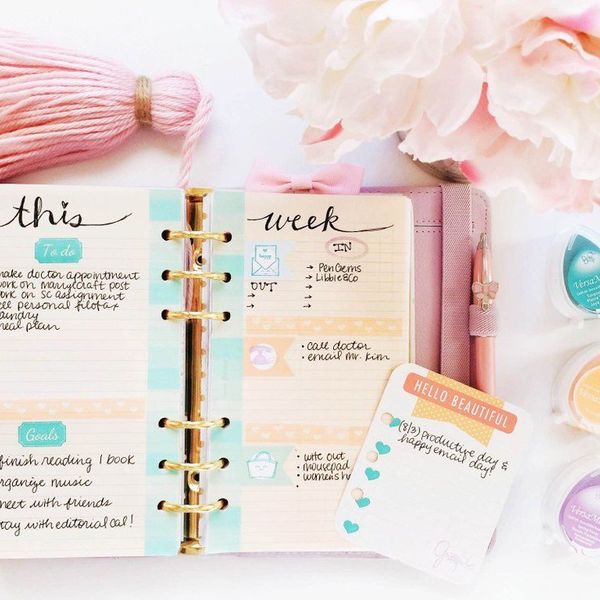 this
To do
make doctor appointment
work on marycraft post
work on sc assignment
personal filofax
laundry
meal plan
Goals
finish reading 1 book
organize music
meet with friends
stay with editorial cal!
week
be happy
IN
→ PenGems
→ Libbie&Co
OUT
• call doctor
• email mr. kim
• wite out
• mousepad
• women's
HELLO BEAUTIFUL
(8/3) productive day &
happy email day!